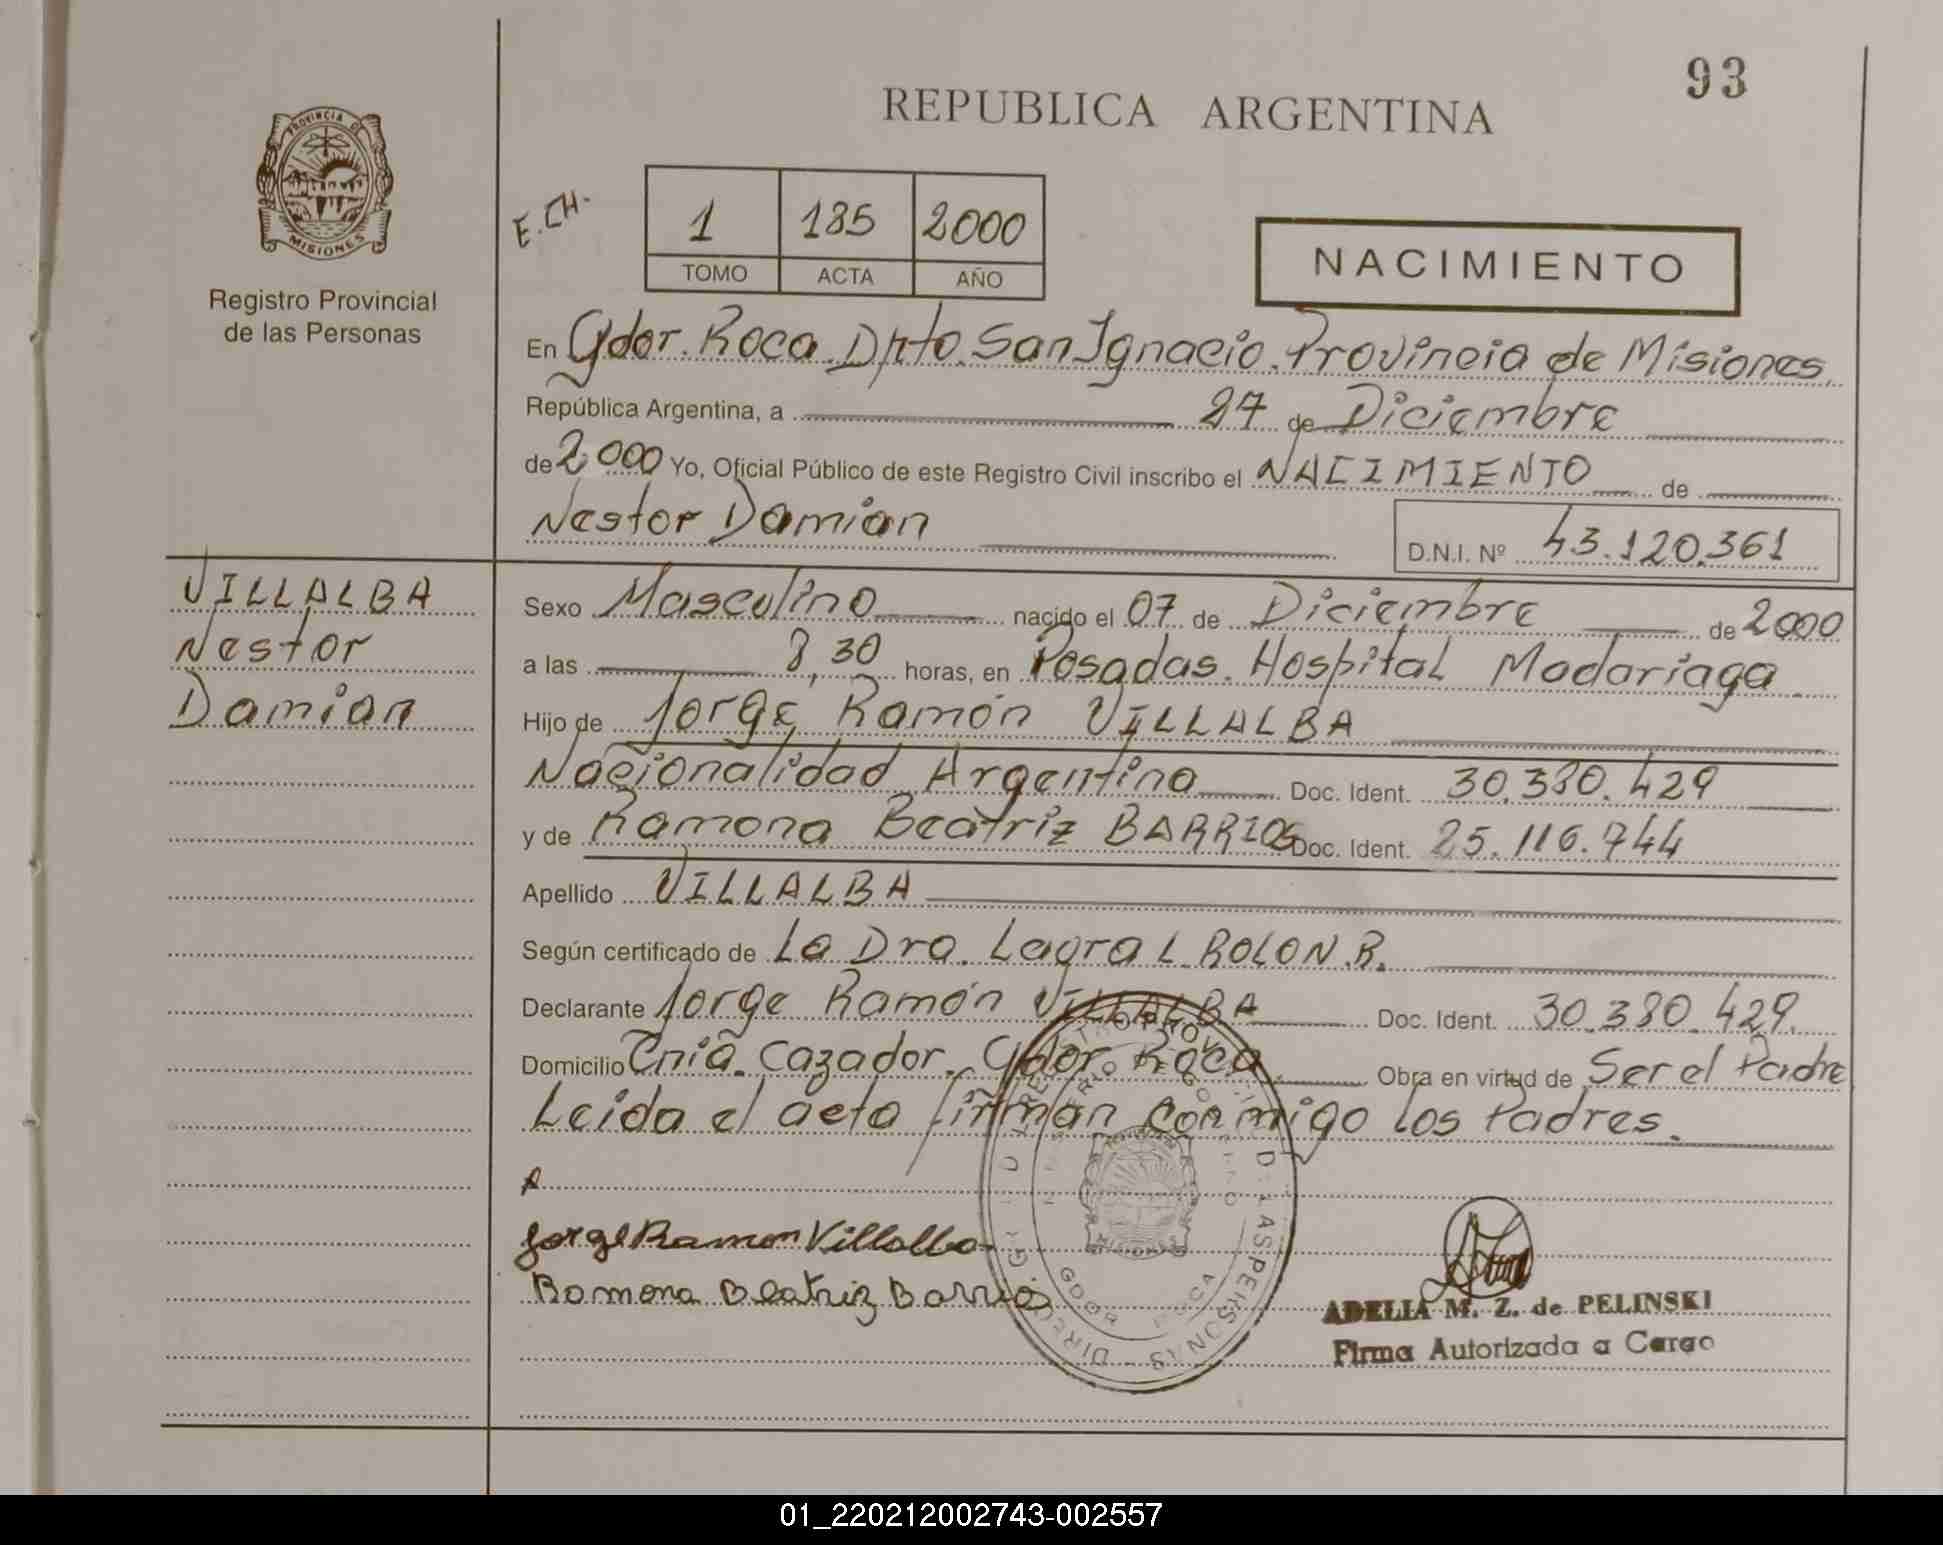 93
REPUBLICA ARGENTINA
PROVINCIA DE
MISIONES
Registro Provincial
de las Personas
E.CH.
1 185 2000
TOMO ACTA AÑO
NACIMIENTO
En Gdor. Roca. Dpto. San Ignacio. Provincia de Misiones
República Argentina, a 27 de Diciembre
de 2000 Yo, Oficial Público de este Registro Civil inscribo el NACIMIENTO de
Nestor Damian
D.N.I. Nº 43.120.361
VILLALBA
Nestor
Damian
Sexo Masculino nacido el 07 de Diciembre de 2000
a las 8,30 horas, en Posadas. Hospital Madariaga
Hijo de Jorge Ramón VILLALBA
Nacionalidad Argentina Doc. Ident. 30.380.429
y de Ramona Beatriz BARRIOS Doc. Ident. 25.116.744
Apellido VILLALBA
Según certificado de La Dra. L ROLON.R.
Declarante Jorge Ramón VILLALBA Doc. Ident. 30.380.429.
Domicilio Cnia. Cazador. Gdor Roca Obra en virtud de Ser el Padre
Leida el acta firman conmigo los Padres.
Jorge Ramon Villalba
Ramona Beatriz Barrios
MISIONES
GDOR ROCA
ADELIA M. Z. de PELINSKI
Firma Autorizada a Cargo
01_220212002743-002557